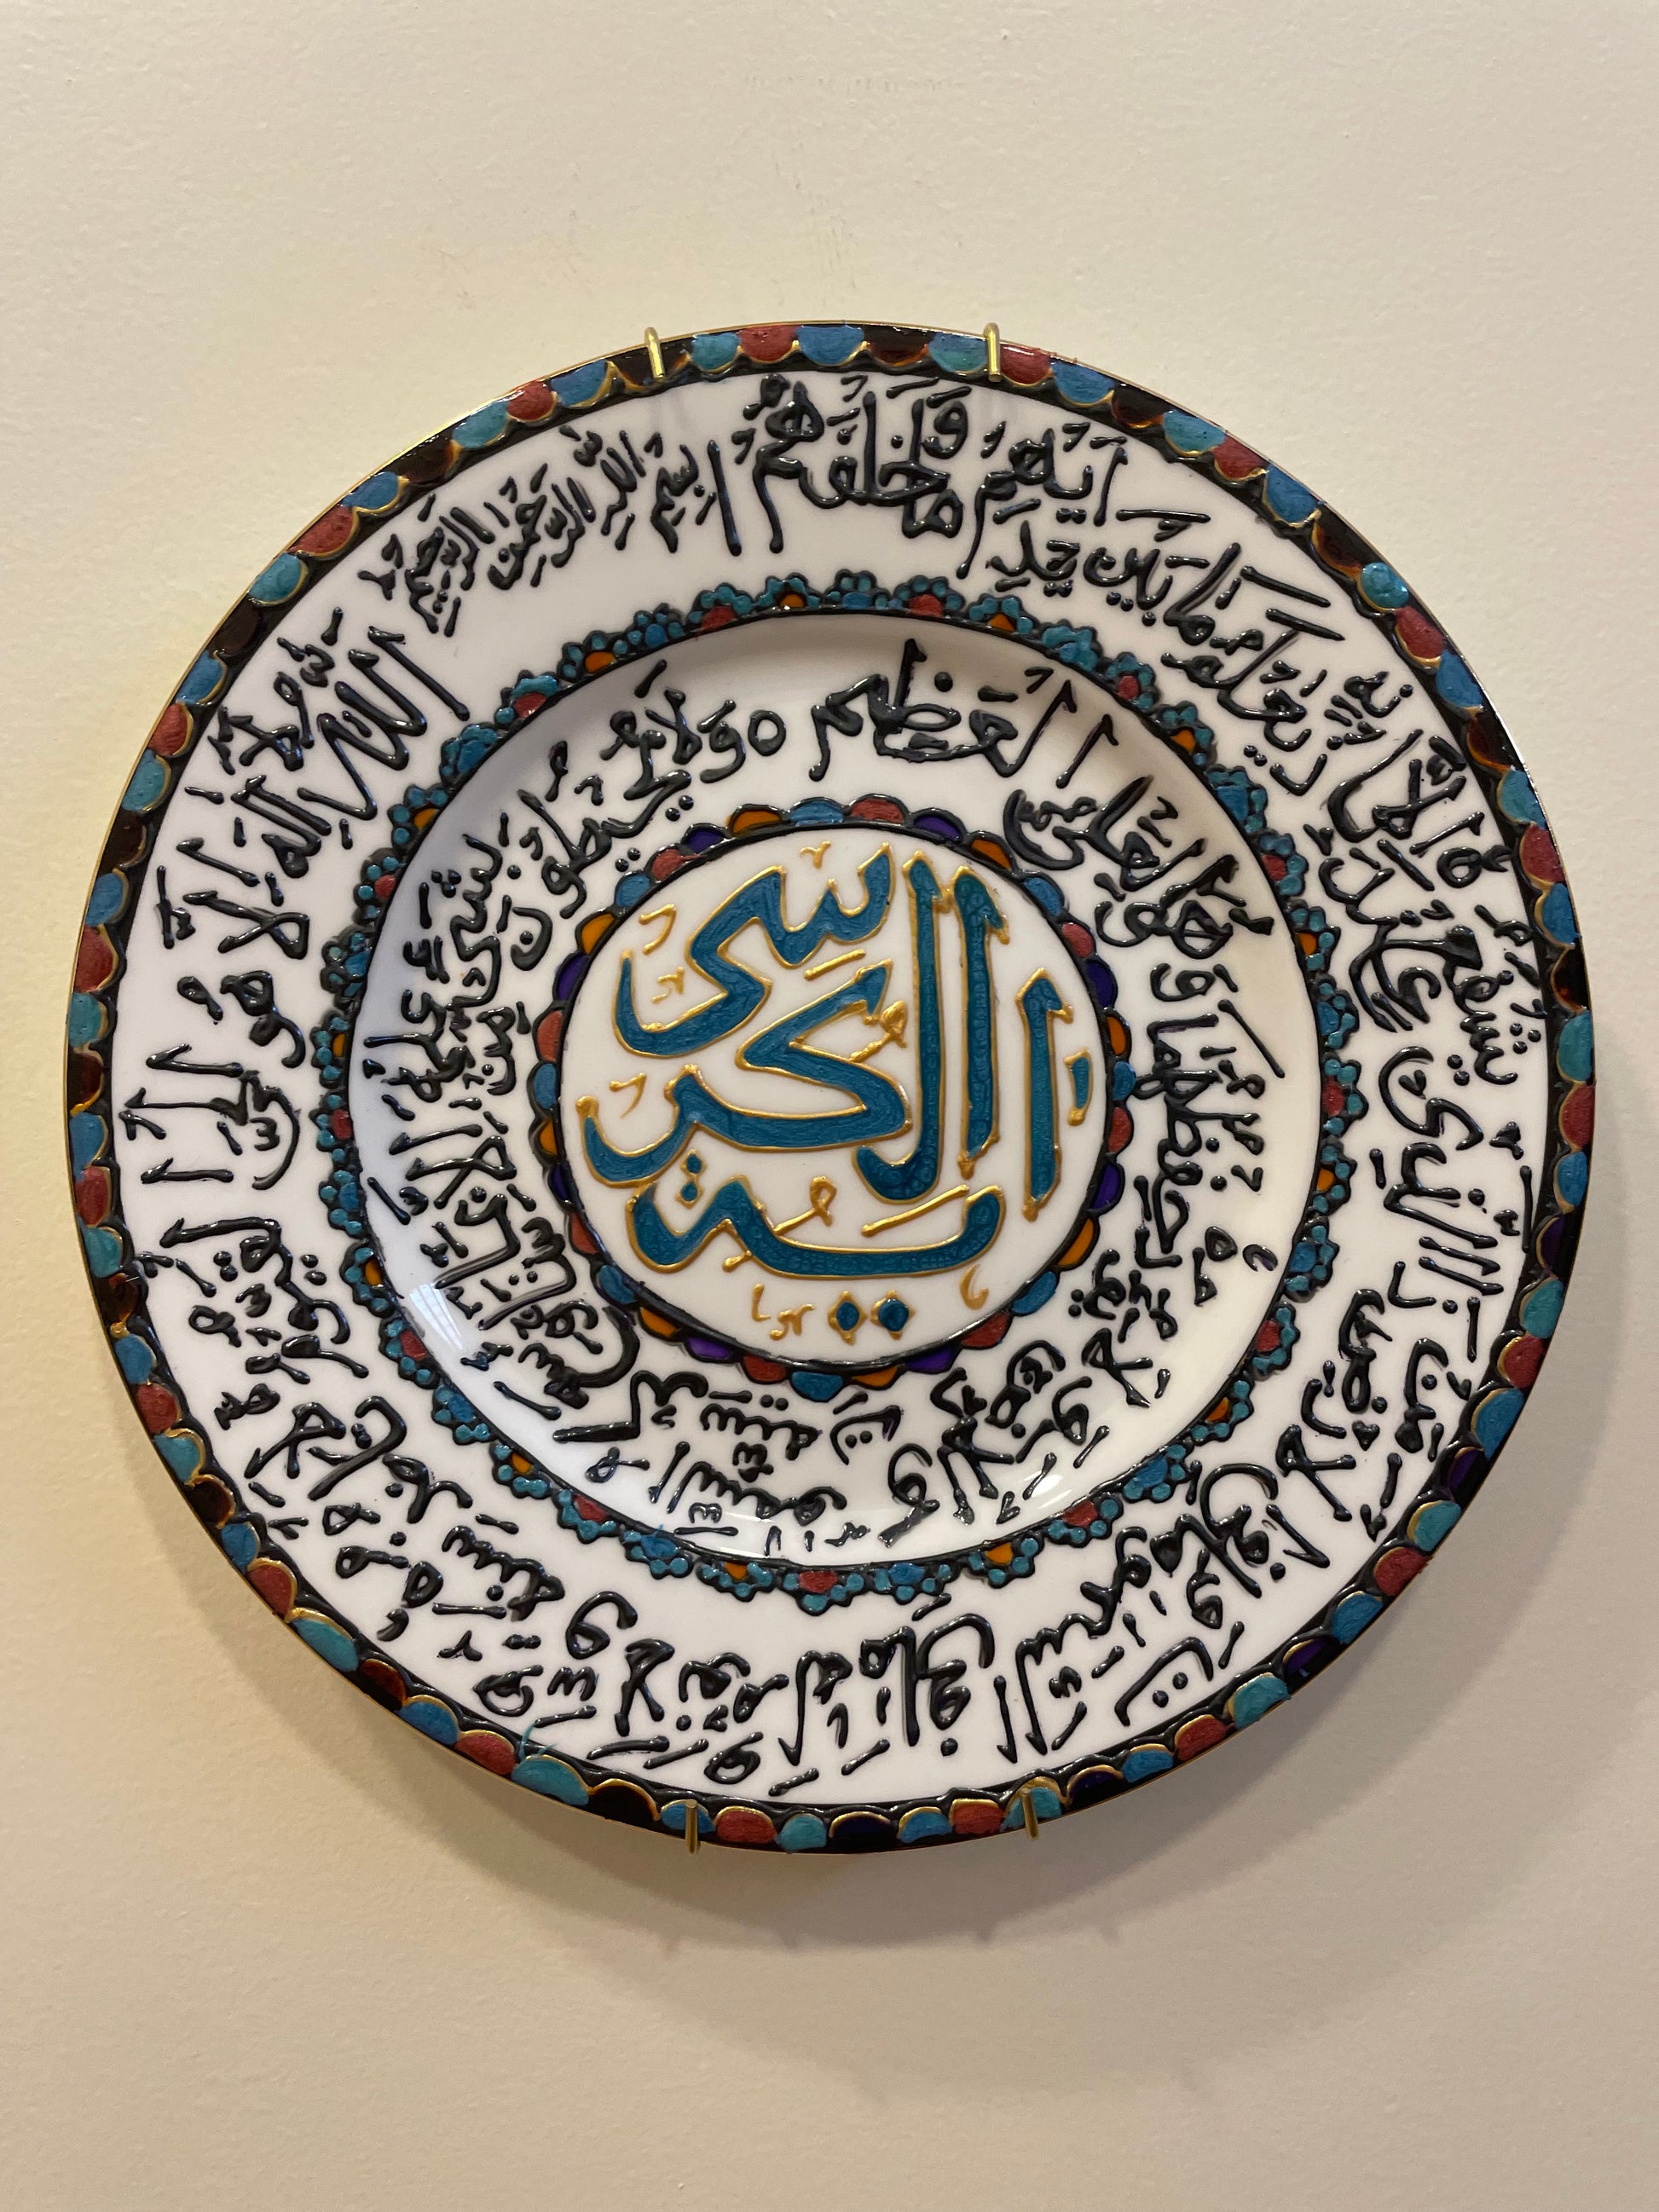 آية الكرسى
بِسْمِ اللهِ الرَّحْمٰنِ الرَّحِيمِ
اللهُ لَا إِلٰهَ إِلَّا هُوَ الْحَىُّ الْقَيُّومُ لَا تَأْخُذُهُ سِنَةٌ وَلَا نَوْمٌ لَهُ مَا فِى السَّمٰوَاتِ وَمَا فِى الْأَرْضِ مَنْ ذَا الَّذِى يَشْفَعُ عِنْدَهُ إِلَّا بِإِذْنِهِ يَعْلَمُ مَا بَيْنَ أَيْدِيهِمْ وَمَا خَلْفَهُمْ
وَلَا يُحِيطُونَ بِشَىْءٍ مِنْ عِلْمِهِ إِلَّا بِمَا شَاءَ وَسِعَ كُرْسِيُّهُ السَّمٰوَاتِ وَالْأَرْضَ وَلَا يَئُودُهُ حِفْظُهُمَا وَهُوَ الْعَلِىُّ الْعَظِيمُ